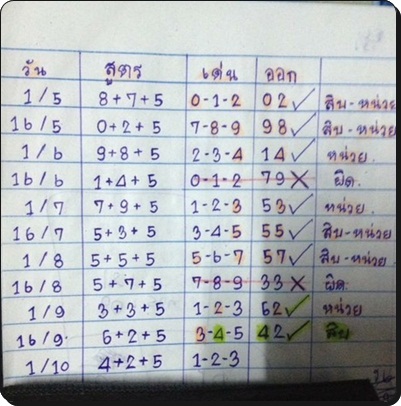 วัน สูตร เด่น ออก
1/5 8+7+5 0-1-2 02✓ สิบ-หน่วย
16/5 0+2+5 7-8-9 98✓ สิบ-หน่วย
1/6 9+8+5 2-3-4 14✓ หน่วย.
16/6 1+4+5 0-1-2 79✗ ผิด.
1/7 7+9+5 1-2-3 53✓ หน่วย.
16/7 5+3+5 3-4-5 55✓ สิบ-หน่วย
1/8 5+5+5 5-6-7 57✓ สิบ-หน่วย
16/8 5+7+5 7-8-9 33✗ ผิด
1/9 3+3+5 1-2-3 62✓ หน่วย
16/9. 6+2+5 3-4-5 42✓ สิบ
1/10 4+2+5 1-2-3